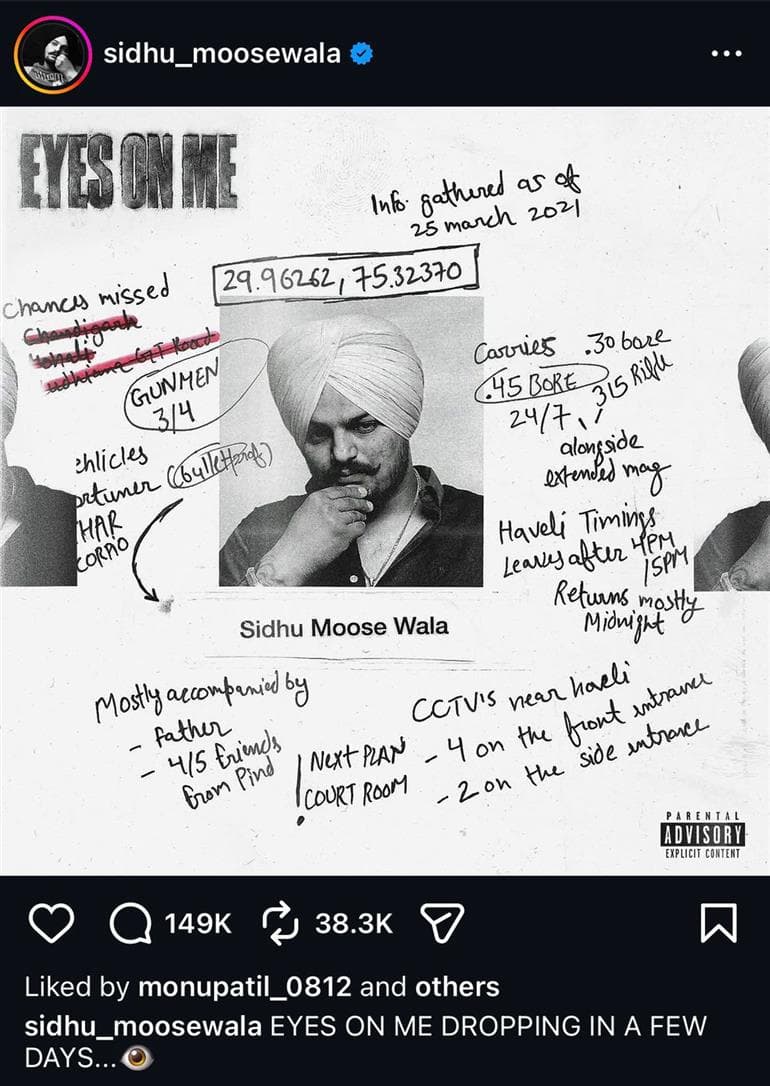 sidhu_moosewala
EYES ON ME
Info gathered as of
25 march 2021
29.96262, 75.32370
Chances missed
Chandigarh
Mohali
udhiana G.T Road
GUNMEN
3/4
ehlicles
ortuner (bulletproof)
HAR
CORPIO
Carries .30 bore
.45 BORE
315 Rifle
24/7
alongside
extended mag
Haveli Timings
Leaves after 4PM
/5PM
Returns mostly
Midnight
Sidhu Moose Wala
Mostly accompanied by
- Father
- 4/5 friends
from Pind
! Next PLAN
COURT ROOM
CCTV'S near haveli
- 4 on the front entrance
- 2 on the side entrance
PARENTAL
ADVISORY
EXPLICIT CONTENT
149K 38.3K
Liked by monupatil_0812 and others
sidhu_moosewala EYES ON ME DROPPING IN A FEW
DAYS...👁️